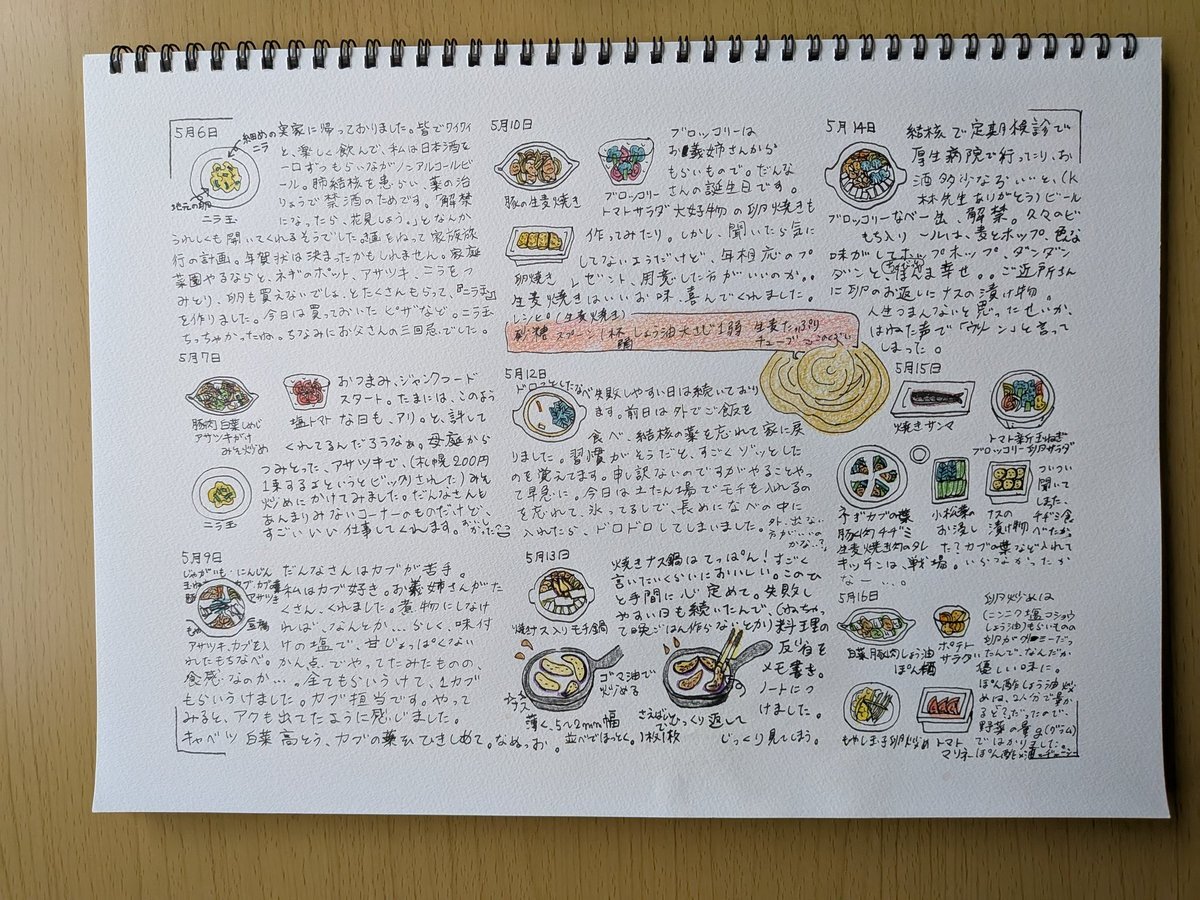 5月6日
細めの
ニラ
地元の卵
ニラ玉
実家に帰っておりました。皆でワイワイ
と、楽しく飲んで、私は日本酒を
一口ずつもらいながらノンアルコールビ
ール。肺結核を患らい、薬の治
りょうで禁酒のためです。「解禁
になったら、花見しよう。」となんか
うれしくも開いてくれるそうでした。道をねって家族旅
行の計画。年賀状は決まったかもしれません。家庭
菜園やるならと、ネギのポット、アサツキ、ニラをつ
みとり、卵も買えないでしょ、とたくさんもらって、『ニラ玉』
を作りました。今日は買っておいたピザなど。ニラ玉
ちっちゃかったね。ちなみにお父さんの三回忌でした。
5月7日
豚肉 白菜 しめじ
アサツキがけ
みそ炒め
塩トマト
ニラ玉
おつまみ、ジャンクフード
スタート。たまには、このよう
な日も、アリ。と、許して
くれてるんだろうなぁ。母庭から
つみとった、アサツキで、(札幌200円
1束するよというとビックリされた)みそ
炒めにかけてみました。だんなさんと
あんまりみないコーナーのものだけど、
すごいいい仕事してくれます。
5月9日
じゃがいも・にんじん
カブ・カブ葉
アサツキ
もやし
豆腐
だんなさんはカブが苦手。
私はカブ好き。お義姉さんがた
くさん、くれました。煮物にしなけ
れば、なんとか…らしく、味付
アサツキ、カブを入
れたもちなべ。
けの塩で、甘じょっぱくない
かん点でやってたみたものの、
食感なのか…。全てもらいうけて、1カブ
もらいうけました。カブ担当です。やって
みると、アクも出てたように感じました。
キャベツ 白菜 高とう、カブの葉をひきしめて。なめっお。
5月10日
豚の生姜焼き
ブロッコリー
トマトサラダ
卵焼き
ブロッコリーは
お義姉さんから
もらいもので。だんな
さんの誕生日です。
大好物の卵焼きも
作ってみたり。しかし、聞いたら気に
してないようだけど、年相応のプ
レゼント、用意した方がいいのか。
生姜焼きはいいお味、喜んでくれました。
レシピ(生姜焼き)
砂糖 スプーン1杯 しょう油大さじ1弱 生姜たっぷり
チューブ このくらい
5月12日
ドロっとしたなべ
失敗しやすい日は続いており
ます。前日は外でご飯を
食べ、結核の薬を忘れて家に戻
りました。習慣がそうだと、すごくゾッとした
のを覚えてます。申し訳ないのですがやることやっ
て早急に。今日は土たん場でモチを入れるの
を忘れて、氷ってるしで、長めになべの中に
入れたら、ドロドロしてしまいました。
外、出ない
方がいいの
かな…?
5月13日
焼ナス入りモチ鍋
焼きナス鍋はてっぱん!すごく
言いたいくらいにおいしい。このひ
と手間に心定めて。失敗し
やすい日も続いたんで、(ねちゃっ
て晩ごはん作らないとか)料理の
反省を
メモ書き。
ノートにつ
けました。
ゴマ油で
炒める
ナス
薄く、5〜2mm幅
並べてほっとく。
さえばしで
ひっくり返して
1枚1枚
じっくり見てしまう。
5月14日
ブロッコリーなべ
もち入り
結核で定期検診で
厚生病院で行ってたり、お
酒多少ならいいと、(K
林先生ありがとう)ビール
一缶、解禁。久々のビ
ールは、麦とホップ、色な
味がしてホップホップ、ダンダン
ダンと ほんま幸せ。。ご近所さん
に卵のお返しにナスの漬け物。
人生つまんないと思ったせいか、
はねた声で「ウルン」と言って
しまった。
5月15日
焼きサンマ
トマト新玉ねぎ
ブロッコリー卵サラダ
ネギカブの葉
豚肉チヂミ
生姜焼き肉のタレ
小松菜の
お浸し
ナスの
漬け物
ついつい
聞いて
しまた、
チヂミ食
べたか
た?カブの葉など入れて
キッチンは、戦場。いらなかったか
なー…。
5月16日
白菜豚肉しょう油
ぽん酢
ポテト
サラダ
もやし玉子卵炒め
トマト
マリネ
卵炒めは
(ニンニク塩コショウ
しょう油)もらいものの
んで、なんだか
優しい味に。
ぽん酢しょう油炒
めは、2人分で量が
野菜の量g(グラム)
ではかりました。